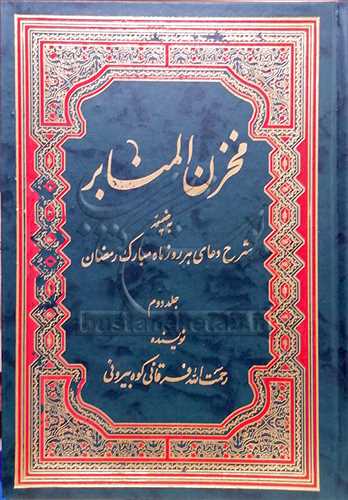 مخزن المنابر
به ضمیمه
شرح دعای هر روز ماه مبارک رمضان
جلد دوم
نویسنده
رحمت الله فرقانی کوه بیرونی